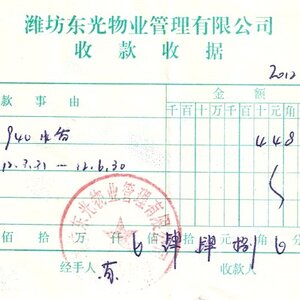 潍坊东光物业管理有限公司
收款收据
2012
款事由 金额
千百十万千百十元角
940 448
12.3.31 — 12.6.30
东光物业管理有限
佰拾万仟佰拾元角分
肆 肆 捌
经手人 收款人